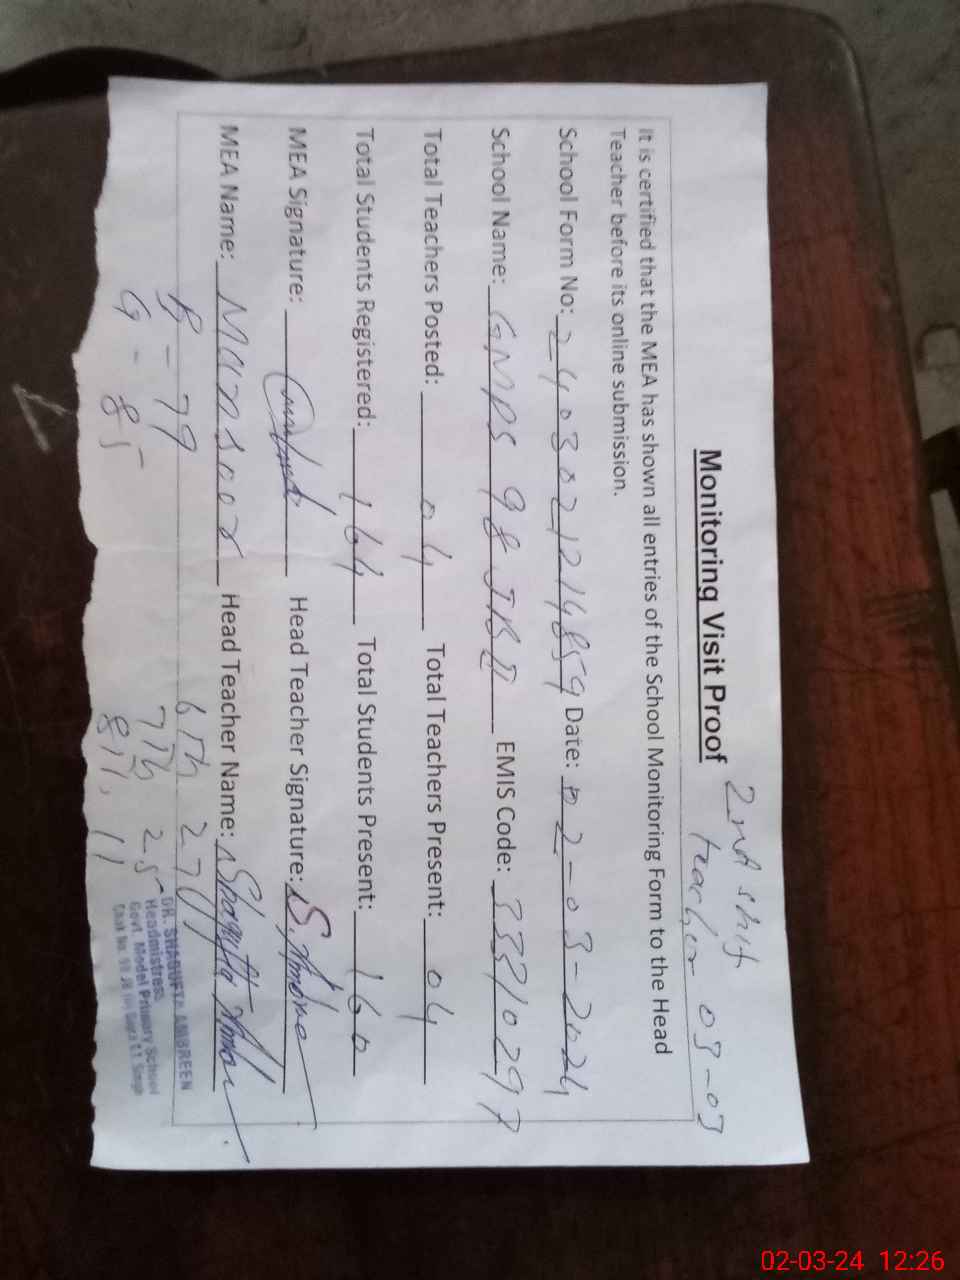 2nd shift
Monitoring Visit Proof teacher 03-03
It is certified that the MEA has shown all entries of the School Monitoring Form to the Head
Teacher before its online submission.
School Form No: 2403021214859 Date: 02-03-2024
School Name: GMPS 98 JB II EMIS Code: 33310297
Total Teachers Posted: 04 Total Teachers Present: 04
Total Students Registered: 164 Total Students Present: 160
MEA Signature: Head Teacher Signature: S. Ambre
MEA Name: Mansoor Head Teacher Name: Shagufta Amber
B - 79 6th 27
G - 85 7th 25
8th, 11
DR. SHAGUFTA AMBREEN
Headmistress
Govt. Model Primary School
Chak No 98 JB
02-03-24 12:26